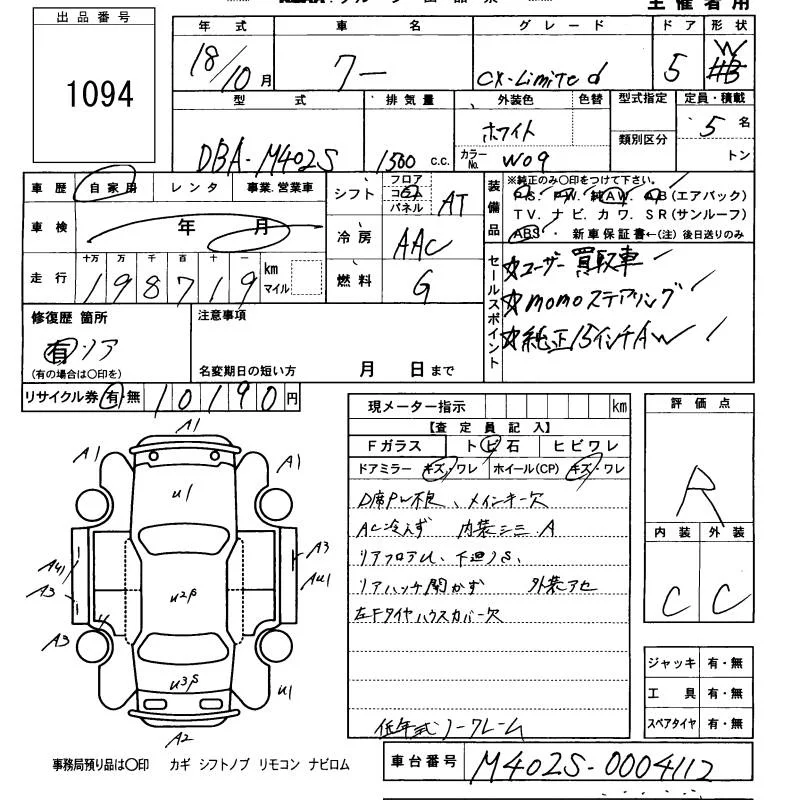 主催者用
出品番号
1094
年式 車名 グレード ドア 形状
18/10月 クー CX-Limited 5 W HB
型式 排気量 外装色 色替 型式指定 定員・積載
DBA-M402S 1500 c.c. ホワイト 類別区分 5名
カラーNo. W09 トン
車歴 自家用 レンタ 事業.営業車
シフト フロア コラム パネル AT
装備品 ※純正のみ○印をつけて下さい。
P.S. P.W. 純A.W. A.B(エアバック)
T V. ナ ビ. カ ワ. S R(サンルーフ)
ABS 新車保証書←(注)後日送りのみ
車検 年 月
冷房 AAC
走行 十万 万 千 百 十 一
198719 km マイル
燃料 G
セールスポイント
☆ユーザー買取車
☆momoステアリング
☆純正15インチAW
修復歴 箇所
有 リア
(有の場合は○印を)
注意事項
名変期日の短い方 月 日まで
リサイクル券 有・無 10190円
現メーター指示 km
【査定員記入】
Fガラス トビ石 ヒビワレ
ドアミラー キズ・ワレ ホイール(CP) キズ・ワレ
D席PW不良、メインキー欠
AC冷えず 内装シミ.A
リアフロアU、下廻りS、
リアハッチ開かず 外装アセ
左Fタイヤハウスカバー欠
低年式ノークレーム
評価点
R
内装 外装
C C
ジャッキ 有・無
工具 有・無
スペアタイヤ 有・無
A1
A1 A1
U1
A3
A4 A4
A3
U2β
A3
U3β
U1
A2
事務局預り品は○印 カギ シフトノブ リモコン ナビロム
車台番号 M402S-0004112